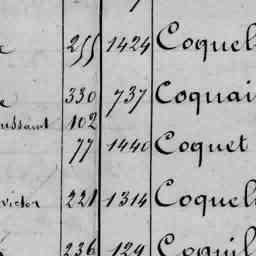 255 1424 Coquel
330 737 Coquai
ussaint 102
77 1440 Coquet
victor 221 1314 Coquel
236 124 Coquil